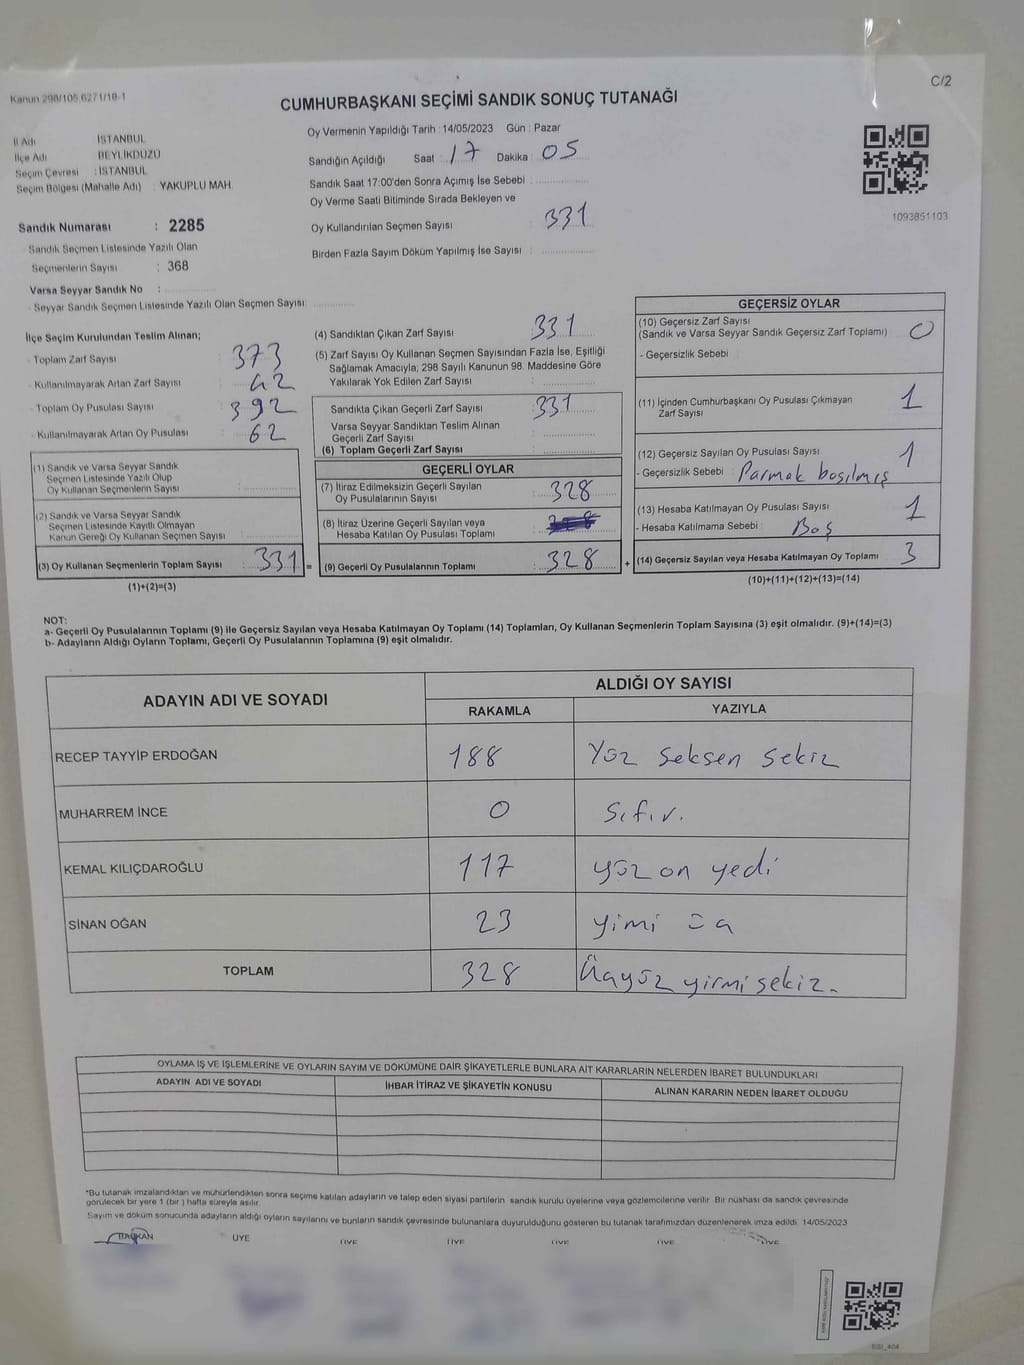 Kanun 298/105 6271/18-1
C/2
CUMHURBAŞKANI SEÇİMİ SANDIK SONUÇ TUTANAĞI
İl Adı İSTANBUL
İlçe Adı BEYLİKDÜZÜ
Seçim Çevresi : İSTANBUL
Seçim Bölgesi (Mahalle Adı) : YAKUPLU MAH.
Sandık Numarası : 2285
- Sandık Seçmen Listesinde Yazılı Olan
Seçmenlerin Sayısı : 368
Varsa Seyyar Sandık No :
- Seyyar Sandık Seçmen Listesinde Yazılı Olan Seçmen Sayısı
Oy Vermenin Yapıldığı Tarih : 14/05/2023 Gün : Pazar
Sandığın Açıldığı Saat : 17 Dakika : 05
Sandık Saat 17:00'den Sonra Açımış İse Sebebi :
Oy Verme Saati Bitiminde Sırada Bekleyen ve
Oy Kullandırılan Seçmen Sayısı : 331
Birden Fazla Sayım Döküm Yapılmış İse Sayısı :
1093851103
İlçe Seçim Kurulundan Teslim Alınan;
- Toplam Zarf Sayısı : 373
- Kullanılmayarak Artan Zarf Sayısı : 42
- Toplam Oy Pusulası Sayısı : 392
- Kullanılmayarak Artan Oy Pusulası : 62
(1) Sandık ve Varsa Seyyar Sandık
Seçmen Listesinde Yazılı Olup
Oy Kullanan Seçmenlerin Sayısı :
(2) Sandık ve Varsa Seyyar Sandık
Seçmen Listesinde Kayıtlı Olmayan
Kanun Gereği Oy Kullanan Seçmen Sayısı :
(3) Oy Kullanan Seçmenlerin Toplam Sayısı : 331 =
(1)+(2)=(3)
(4) Sandıktan Çıkan Zarf Sayısı : 331
(5) Zarf Sayısı Oy Kullanan Seçmen Sayısından Fazla İse, Eşitliği
Sağlamak Amacıyla; 298 Sayılı Kanunun 98. Maddesine Göre
Yakılarak Yok Edilen Zarf Sayısı :
Sandıkta Çıkan Geçerli Zarf Sayısı : 331
Varsa Seyyar Sandıktan Teslim Alınan
Geçerli Zarf Sayısı :
(6) Toplam Geçerli Zarf Sayısı :
GEÇERLİ OYLAR
(7) İtiraz Edilmeksizin Geçerli Sayılan
Oy Pusulalarının Sayısı : 328
(8) İtiraz Üzerine Geçerli Sayılan veya
Hesaba Katılan Oy Pusulası Toplamı :
(9) Geçerli Oy Pusulalarının Toplamı : 328 +
GEÇERSİZ OYLAR
(10) Geçersiz Zarf Sayısı
(Sandık ve Varsa Seyyar Sandık Geçersiz Zarf Toplamı) : 0
- Geçersizlik Sebebi :
(11) İçinden Cumhurbaşkanı Oy Pusulası Çıkmayan
Zarf Sayısı : 1
(12) Geçersiz Sayılan Oy Pusulası Sayısı : 1
- Geçersizlik Sebebi : Parmak basılmış
(13) Hesaba Katılmayan Oy Pusulası Sayısı : 1
- Hesaba Katılmama Sebebi : Boş
(14) Geçersiz Sayılan veya Hesaba Katılmayan Oy Toplamı : 3
(10)+(11)+(12)+(13)=(14)
NOT:
a- Geçerli Oy Pusulalarının Toplamı (9) ile Geçersiz Sayılan veya Hesaba Katılmayan Oy Toplamı (14) Toplamları, Oy Kullanan Seçmenlerin Toplam Sayısına (3) eşit olmalıdır. (9)+(14)=(3)
b- Adayların Aldığı Oyların Toplamı, Geçerli Oy Pusulalarının Toplamına (9) eşit olmalıdır.
ADAYIN ADI VE SOYADI ALDIĞI OY SAYISI
RAKAMLA YAZIYLA
RECEP TAYYİP ERDOĞAN 188 Yüz seksen sekiz
MUHARREM İNCE 0 Sıfır.
KEMAL KILIÇDAROĞLU 117 yüz on yedi
SİNAN OĞAN 23 yimi üç
TOPLAM 328 Üçyüz yirmi sekiz.
OYLAMA İŞ VE İŞLEMLERİNE VE OYLARIN SAYIM VE DÖKÜMÜNE DAİR ŞİKAYETLERLE BUNLARA AİT KARARLARIN NELERDEN İBARET BULUNDUKLARI
ADAYIN ADI VE SOYADI İHBAR İTİRAZ VE ŞİKAYETİN KONUSU ALINAN KARARIN NEDEN İBARET OLDUĞU
*Bu tutanak imzalandıktan ve mühürlendikten sonra seçime katılan adayların ve talep eden siyasi partilerin sandık kurulu üyelerine veya gözlemcilerine verilir. Bir nüshası da sandık çevresinde
görülecek bir yere 1 (bir) hafta süreyle asılır.
Sayım ve döküm sonucunda adayların aldığı oyların sayılarını ve bunların sandık çevresinde bulunanlara duyurulduğunu gösteren bu tutanak tarafımızdan düzenlenerek imza edildi. 14/05/2023
BAŞKAN ÜYE ÜYE ÜYE ÜYE ÜYE ÜYE